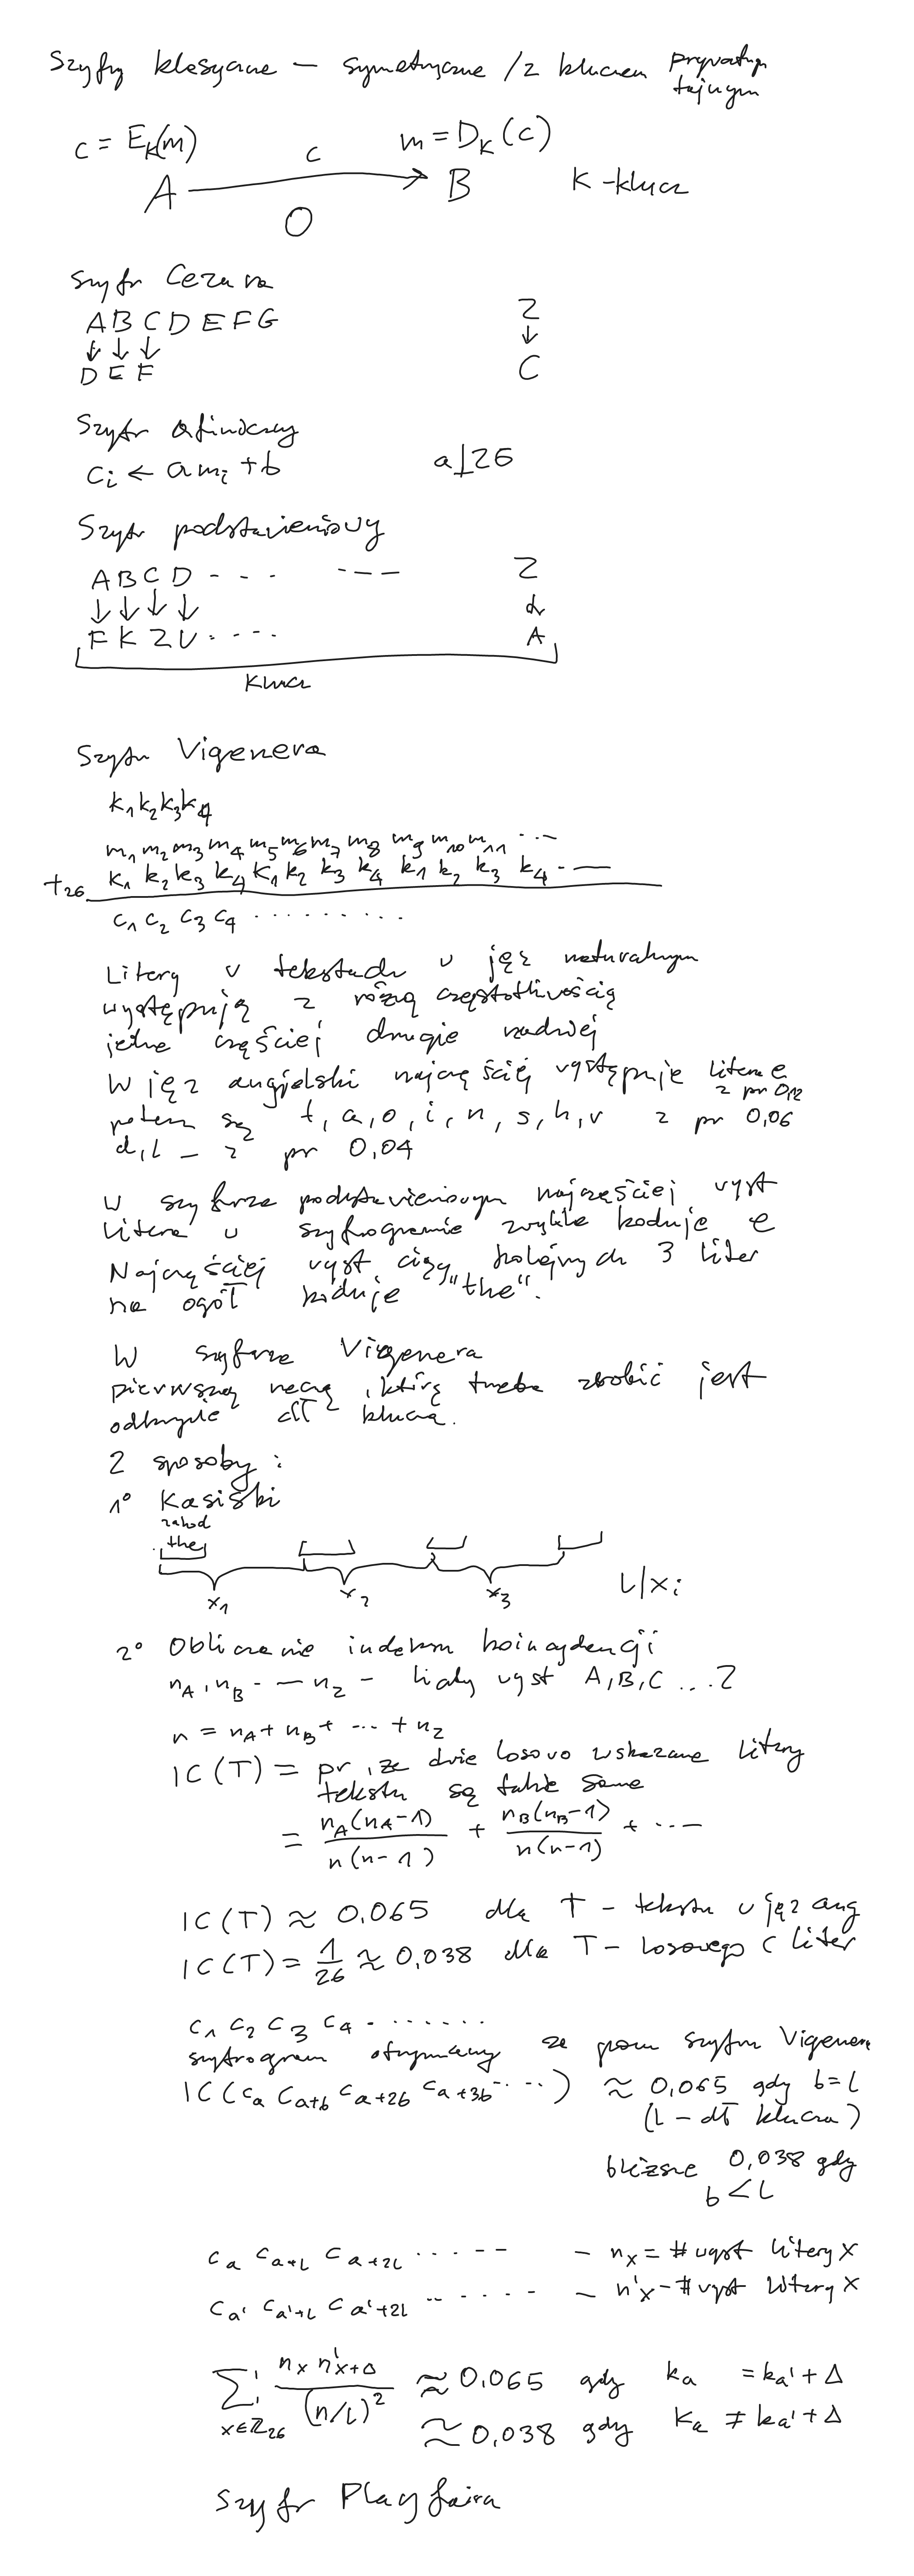 Szyfry klasyczne – symetryczne / z kluczem prywatnym
tajnym
c = E_K(m) c m = D_K(c)
A → B K - klucz
O
Szyfr Cezara
A B C D E F G Z
↓ ↓ ↓ ↓
D E F C
Szyfr afiniczny
c_i ← a m_i + b a⊥26
Szyfr podstawieniowy
A B C D - - - - - - Z
↓ ↓ ↓ ↓ ↓
F K Z U . - - - A
Klucz
Szyfr Vigenera
k_1 k_2 k_3 k_4
m_1 m_2 m_3 m_4 m_5 m_6 m_7 m_8 m_9 m_10 m_11 ...
+_26 k_1 k_2 k_3 k_4 k_1 k_2 k_3 k_4 k_1 k_2 k_3 k_4 ...
c_1 c_2 c_3 c_4 .........
Litery w tekstach w jęz naturalnym
występują z różną częstotliwością
jedne częściej drugie rzadziej
W jęz angielski najczęściej występuje litera e
z pr 0,12
potem są t, a, o, i, n, s, h, r z pr 0,06
d, l – z pr 0,04
W szyfrze podstawieniowym najczęściej wyst
litera w szyfrogramie zwykle koduje e
Najczęściej wyst ciąg kolejnych 3 liter
na ogół koduje "the".
W szyfrze Vigenera
pierwszą rzeczą, którą trzeba zrobić jest
odkrycie dł klucza.
2 sposoby :
1° Kasiski
zakod
the
x_1 x_2 x_3 l | x_i
2° Obliczanie indeksu koincydencji
n_A, n_B - — n_Z – liczby wyst A, B, C ... Z
n = n_A + n_B + ... + n_Z
IC(T) = pr, że dwie losowo wskazane litery
tekstu są takie same
= n_A(n_A-1) / n(n-1) + n_B(n_B-1) / n(n-1) + ...
IC(T) ≈ 0,065 dla T – tekstu w jęz ang
IC(T) = 1/26 ≈ 0,038 dla T – losowego c liter
c_1 c_2 c_3 c_4 .......
szyfrogram otrzymany za pom szyfru Vigenera
IC(c_a c_{a+b} c_{a+2b} c_{a+3b} ...) ≈ 0,065 gdy b = l
(l – dł klucza)
bliższe 0,038 gdy
b < l
c_a c_{a+l} c_{a+2l} ..... – n_x = # wyst litery x
c_{a'} c_{a'+l} c_{a'+2l} ..... – n'_x – # wyst litery x
∑_{x∈Z_26} n_x n'_{x+Δ} / (n/l)^2 ≈ 0,065 gdy k_a = k_{a'} + Δ
≈ 0,038 gdy k_a ≠ k_{a'} + Δ
Szyfr Playfaira